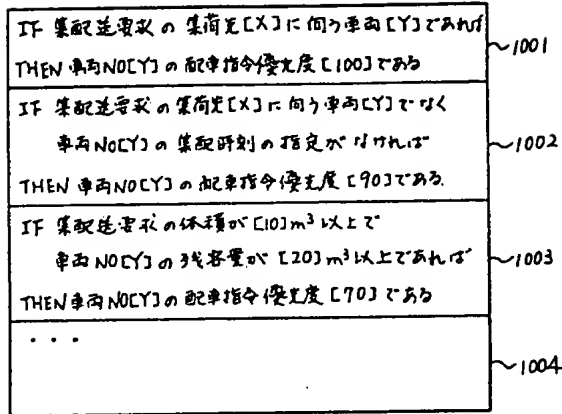 IF 集配送要求の集荷先[X]に向う車両[Y]であれば
THEN 車両NO[Y]の配車指令優先度[100]である
~1001
IF 集配送要求の集荷先[X]に向う車両[Y]でなく
車両NO[Y]の集配時刻の指定がなければ
THEN 車両NO[Y]の配車指令優先度[90]である.
~1002
IF 集配送要求の体積が[10]m³以上で
車両NO[Y]の残容量が[20]m³以上であれば
THEN 車両NO[Y]の配車指令優先度[70]である
~1003
・・・
~1004